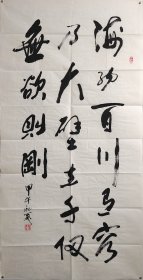 海纳百川有容
乃大壁立千仞
無欲則剛
甲午秋寒